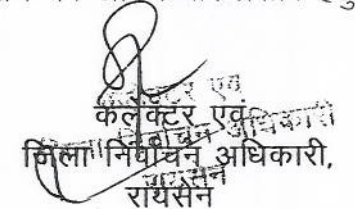 कलेक्टर एवं
जिला निर्वाचन अधिकारी,
रायसेन